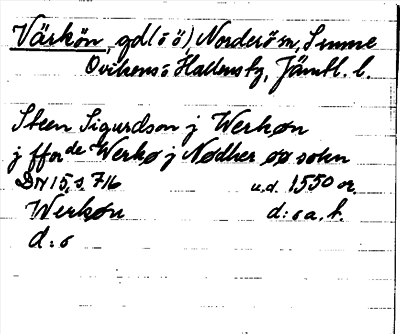 Värkön, gd (ö ö), Norderö sn, Sunne
Ovikens o Hallens tg, Jämtl. l.
Steen Sigurdson j Werkøn
j fforde Werkø j Nødher øø sokn
DN 15, s. 716 u.d. 1550 or.
Werkøn d:o a. t.
d:o